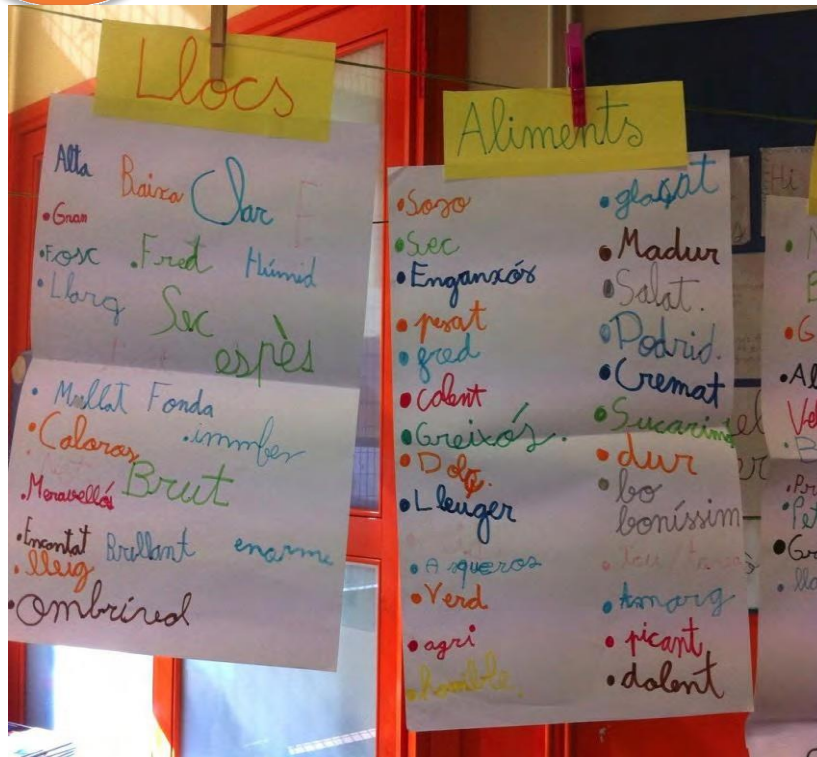 Llocs
Alta Baixa Clar E
• Gran
• Fosc • Fred Húmid
• Llarg Sec
espès
• Mullat Fonda
• Caloros • immfes
• Meravellós Brut
• Encantat Brillant enorme
• lleig
• Ombrívol
Aliments
• Soso
• Sec
• Enganxós
• pesat
• fred
• calent
• Greixós.
• Dolç.
• Lleuger
• Asqueros
• Verd
• agri
• horrible,
• glaçat
• Madur
• Salat.
• Podrid.
• Cremat
• Sucarimos
• dur
• bo
boníssim
• Tou / tova
• Amarg
• picant
• dolent
Hi